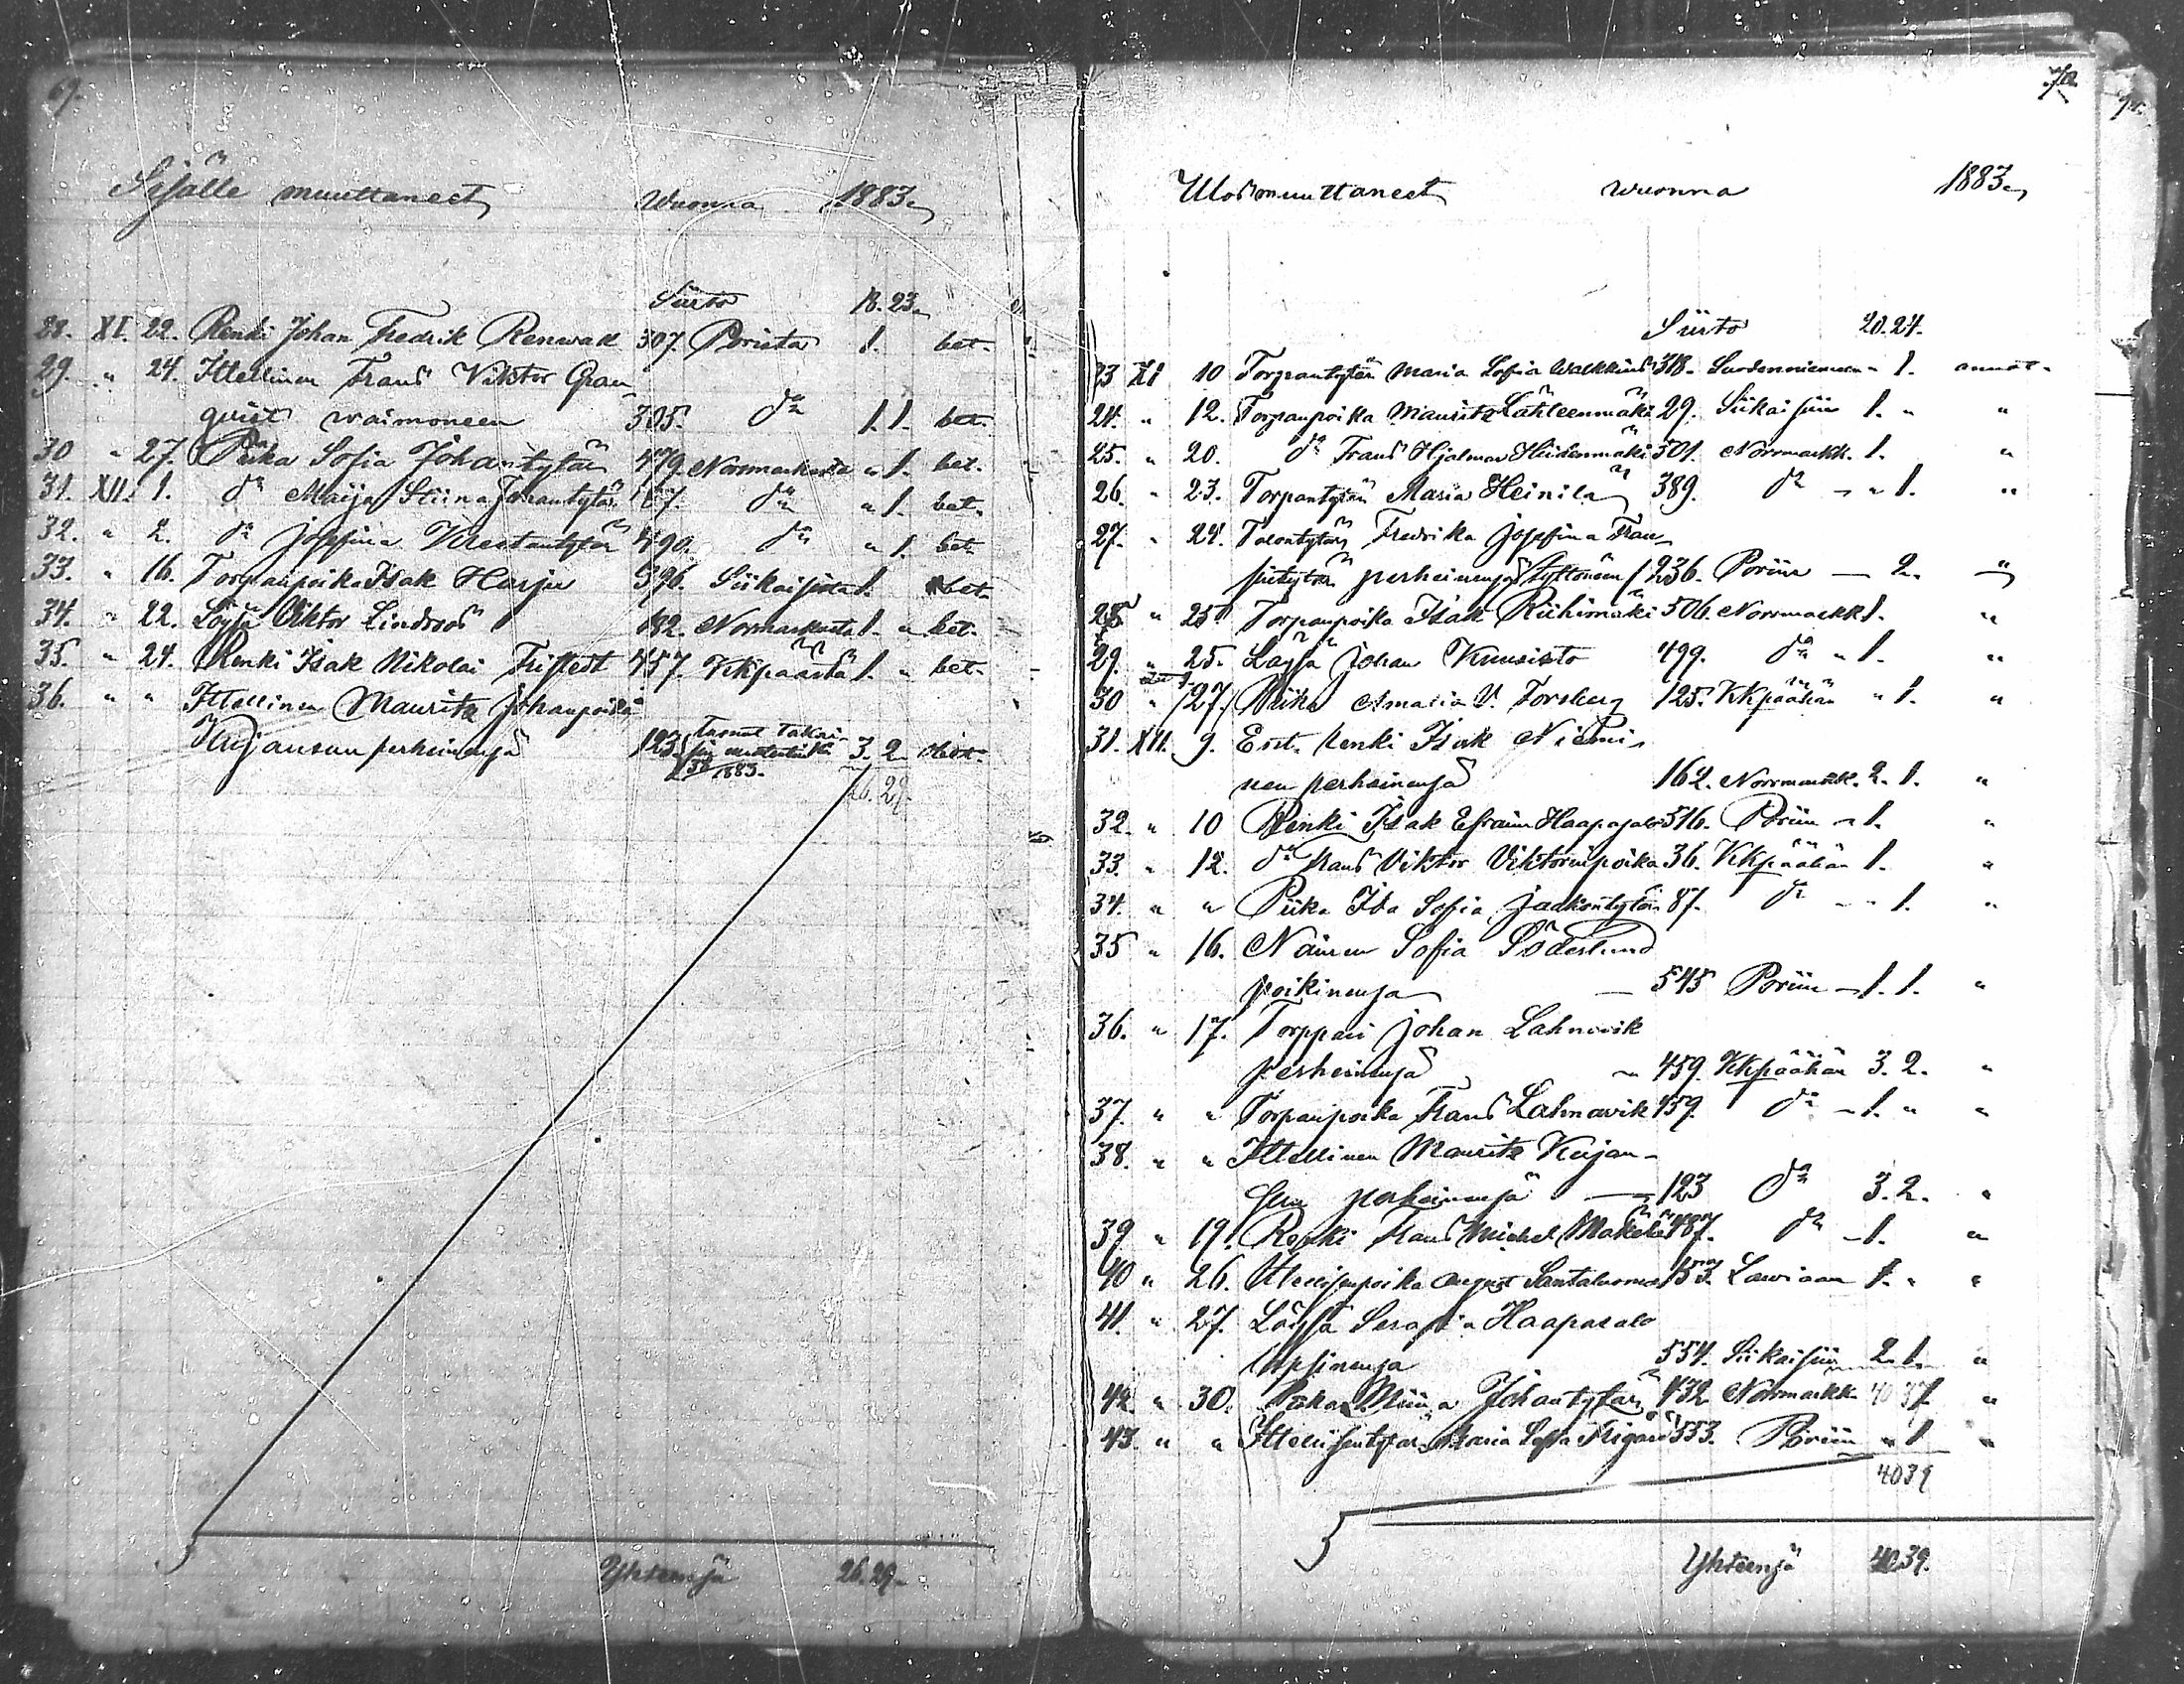 69.
Sisälle muuttaneet wuonna 1883.
Siirto 18. 23.
28. XI. 22. Renki Johan Fredrik Renwall 307. Porista 1. bet.
29. " 24. Ittellinen Frans Viktor Gran
qvist waimoneen 305. do 1. 1. bet.
30 " 27. Piika Sofia Johantytär 479. Norrmarkusta " 1. bet.
31. XII. 1. do Maija Stiina Johantytär 167. do " 1. bet.
32. " 2. do Josefina Krestantytär 490. do " 1. bet.
33. " 16. Torparipoika Isak Harju 396. Siikaisista 1. bet.
34. " 22. Löysä Viktor Lindroos 182. Normarkusta 1. " bet.
35. " 24. Renki Isak Nikolai Fristedt 457. Kkpäästä 1. " bet.
36. " " Ittellinen Mauritz Johanpoika
Kujansuu perheinensä 123. 3. 2.
26. 29.
Yhteensä 26. 29.
70.
Ulosmuuttaneet wuonna 1883.
Siirto 20. 24.
23 XI 10 Torpantytär Maria Sofia 318. Suodenniemeen " 1. annot.
24. " 12. Torpanpoika Mauritz Lähteenmäki 29. Siikaisiin 1. " "
25. " 20. do Frans Hjalmar Heidenmäki 501. Norrmarkk. 1. "
26. " 23. Torpantytär Maria Heinilä 389. do " 1. "
27. " 24. Talontytär Fredrika Josefina Fran
sintytär perheinensä 236. Poriin — 2. "
28 " 25 Torpanpoika Isak Riihimäki 506. Norrmarkk 1. "
29. " 25. Löysä Johan Kuusisto 499. do " 1. "
30 " 27. Piika Amalia V. Forsberg 125. KKpäähän " 1. "
31. XII. 9. Ent. renki Isak Niemi
nen perheinensä 162. Norrmarkk. 2. 1. "
32. " 10 Renki Isak Efraim Haapasalo 516. Poriin 1. "
33. " 12. do Frans Viktor Viktorinpoika 36. KKpäähän 1. "
34. " " Piika Ida Sofia Jaakontytär 87. do 1. "
35 " 16. Nainen Sofia Söderlund
poikinensa — 545 Poriin 1. 1. "
36. " 17. Torppari Johan Lahnavik
perheinensä 459. KKpäähän 3. 2. "
37. " " Torparipoika Frans Lahnavik 459. do 1. " "
38. " " Ittellinen Mauritz Kujan-
suu perheinensä — 123 do 3. 2. "
39 " 19. Renki Frans Michel Mäkelä 487. do 1. "
40 " 26. Itellisenpoika August Santaluoma 153. Lawiaan 1. " "
41. " 27. Löysä Serafia Haapasalo
lapsinensa 554. Siikaisiin 2. 1. "
42. " 30. Piika Miina Johantytär 432. Norrmarkk. 40 37 "
43. " " Ittellisentytär Maria Sofia 553. Poriin " 1 "
40 39
Yhteensä 40. 39.